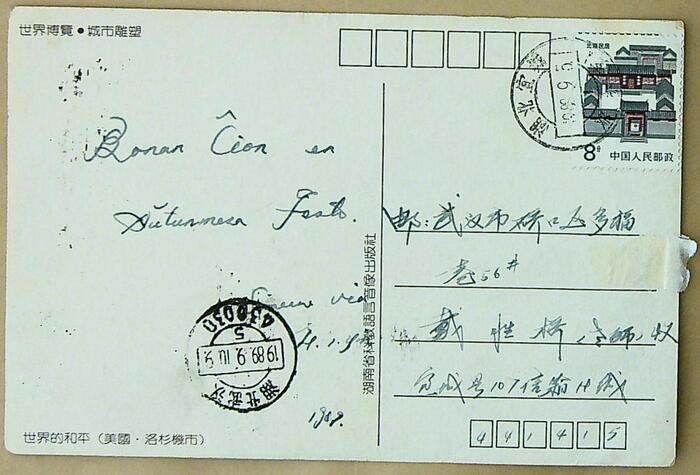 世界博覽●城市雕塑
北京民居
8分
中国人民邮政
湖北宜
Bonan Ĉion en
Aŭtunmesa Festo.
Sincere via
1989.
湖南省科教語言音像出版社
邮: 武汉市桥口区多福
巷56#
戴 胜 桥 老师 收
宜城县107信箱
430030
5
1989.9.10.9
湖北武汉
世界的和平 (美國·洛杉機市)
441415